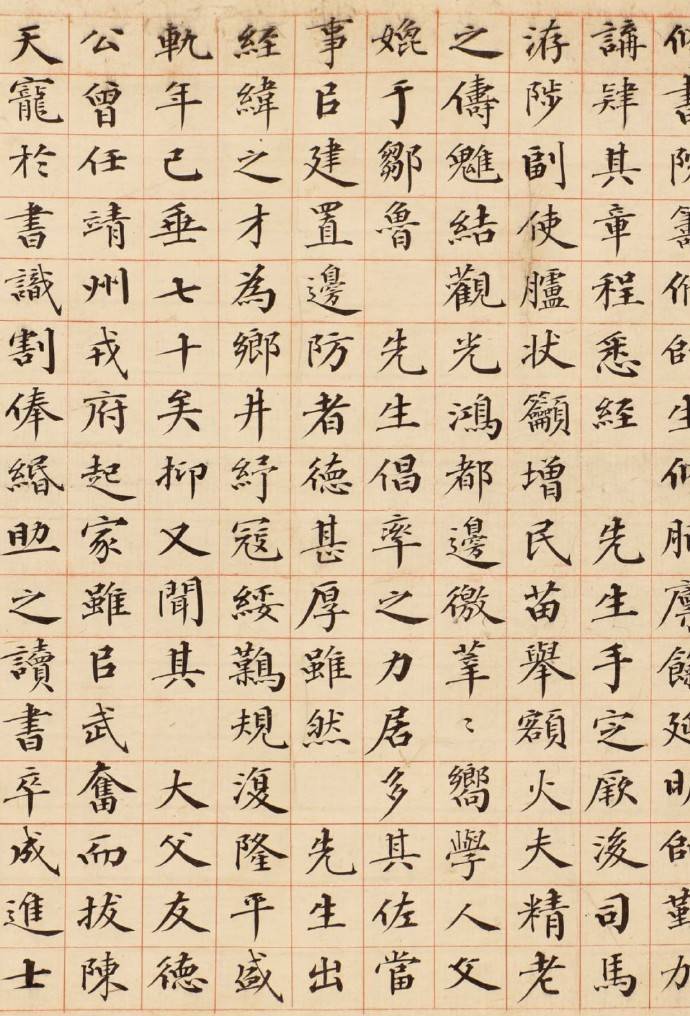 書院籌脩師生脩脯廩餼延明師勤力
講肄其章程悉經 先生手定厥後司馬
洊陟副使臚狀籲增民苗舉額火夫精老
之儔魋結觀光鴻都邊徼莘〻嚮學人文
媲于鄒魯 先生倡率之力居多其佐當
事㠯建置邊防者德甚厚雖然 先生出
經緯之才為鄉井紓寇綏鷄規復隆平盛
軌年已垂七十矣抑又聞其 大父友德
公曾任靖州戎府起家雖㠯武 奮而拔陳
天寵於書識割俸緡助之讀書卒成進士